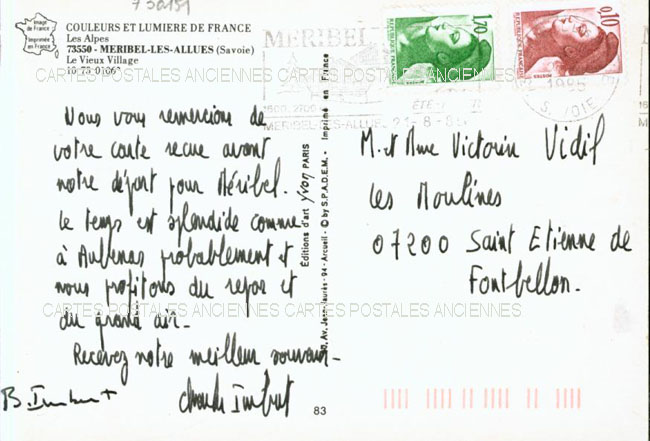 730151
Image de France
Imprimée en France
COULEURS ET LUMIERE DE FRANCE
Les Alpes
73550 - MERIBEL-LES-ALLUES (Savoie)
Le Vieux Village
10-73-0106
CARTES POSTALES ANCIENNES CARTES POSTALES ANCIENNES
Nous vous remercions de
votre carte reçue avant
notre départ pour Méribel.
Le temps est splendide comme
à Aubenas probablement et
nous profitons du repos et
du grand air.
Recevez notre meilleur souvenir.
B. Imbert
Claude Imbert
CARTES POSTALES ANCIENNES CARTES POSTALES ANCIENNES
Editions d'art yvon PARIS
Av. Jean-Jaurès - 94 - Arcueil - © by S.P.A.D.E.M. - Imprimé en France
83
MERIBEL
1600.2700
MERIBEL-LES-ALLUES
ETE
21-8-86
SAVOIE
REPUBLIQUE FRANÇAISE
1,70
POSTES
REPUBLIQUE FRANÇAISE
0,10
POSTES
M. et Mme Victorin Vidil
Les Moulines
07200 Saint Etienne de
Fontbellon.